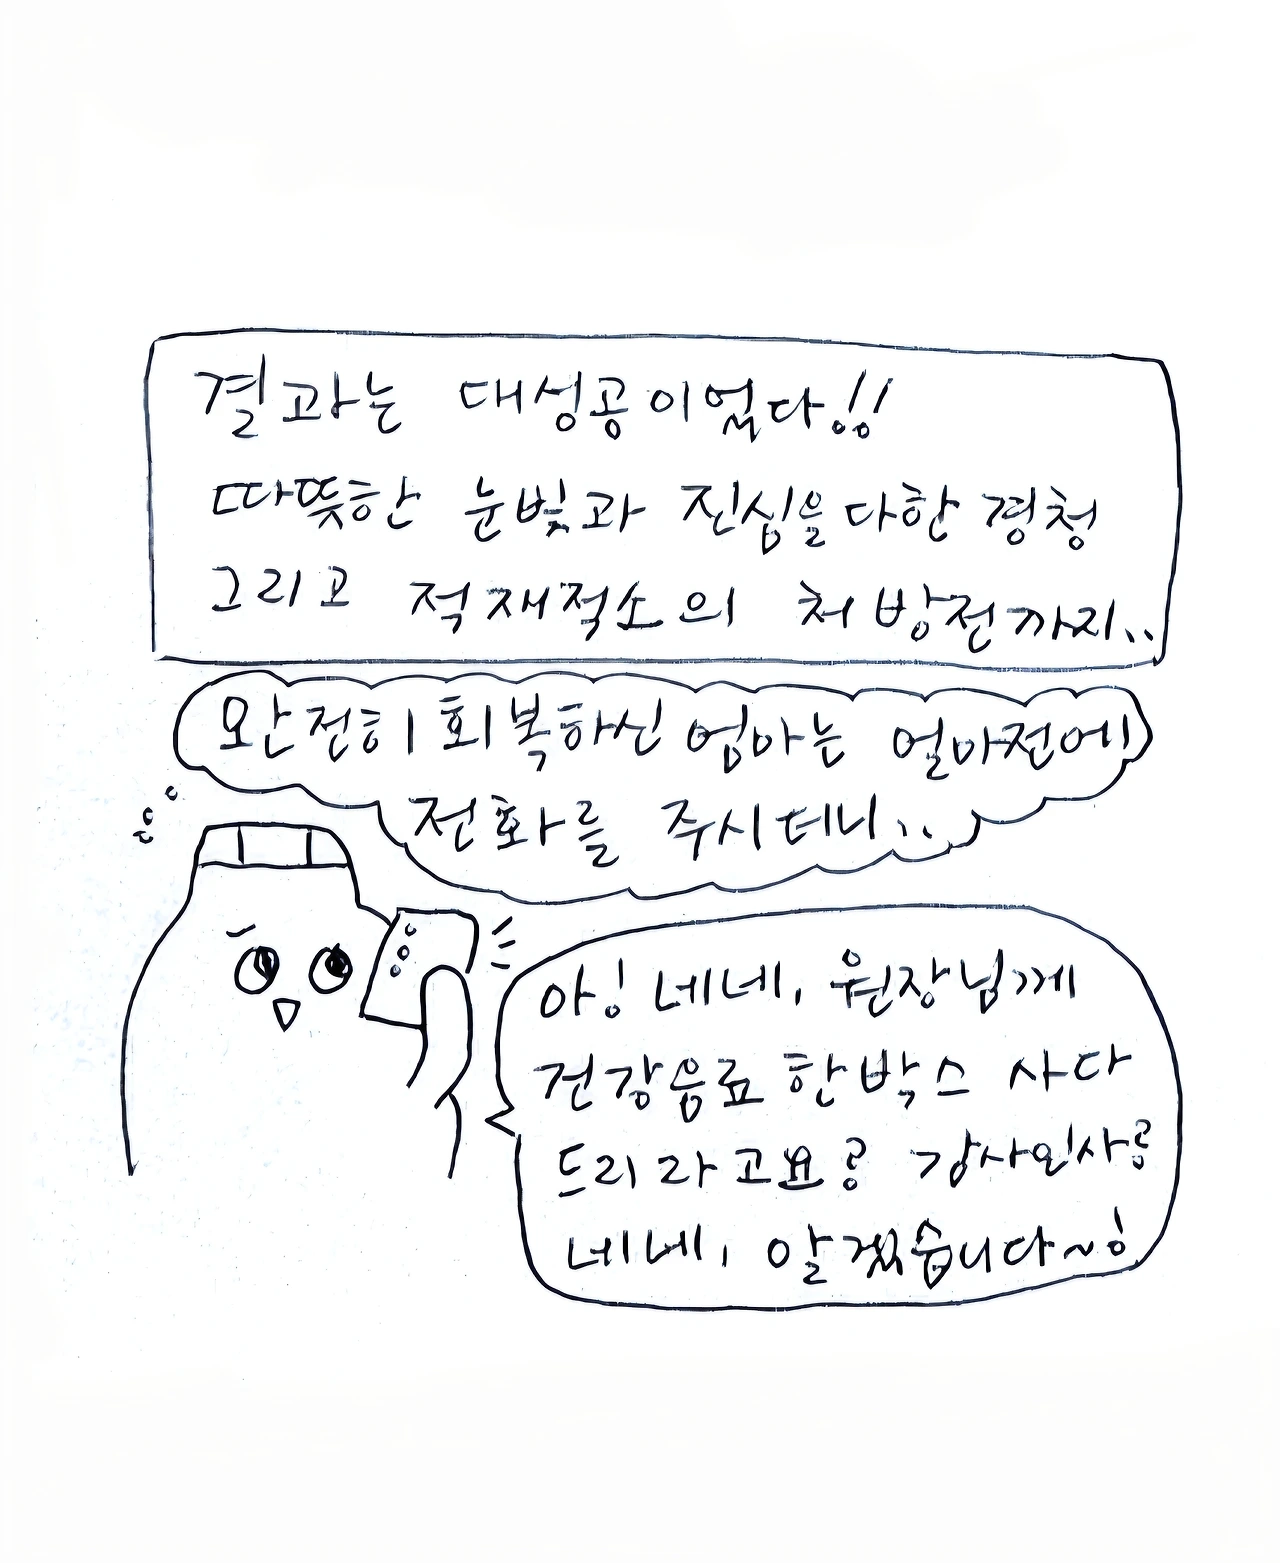 결과는 대성공이었다!!
따뜻한 눈빛과 진심을다한 경청
그리고 적재적소의 처방전까지..
완전히 회복하신 엄마는 얼마전에
전화를 주시더니..
아! 네네, 원장님께
건강음료 한박스 사다
드리라고요? 감사인사?
네네, 알겠습니다~!